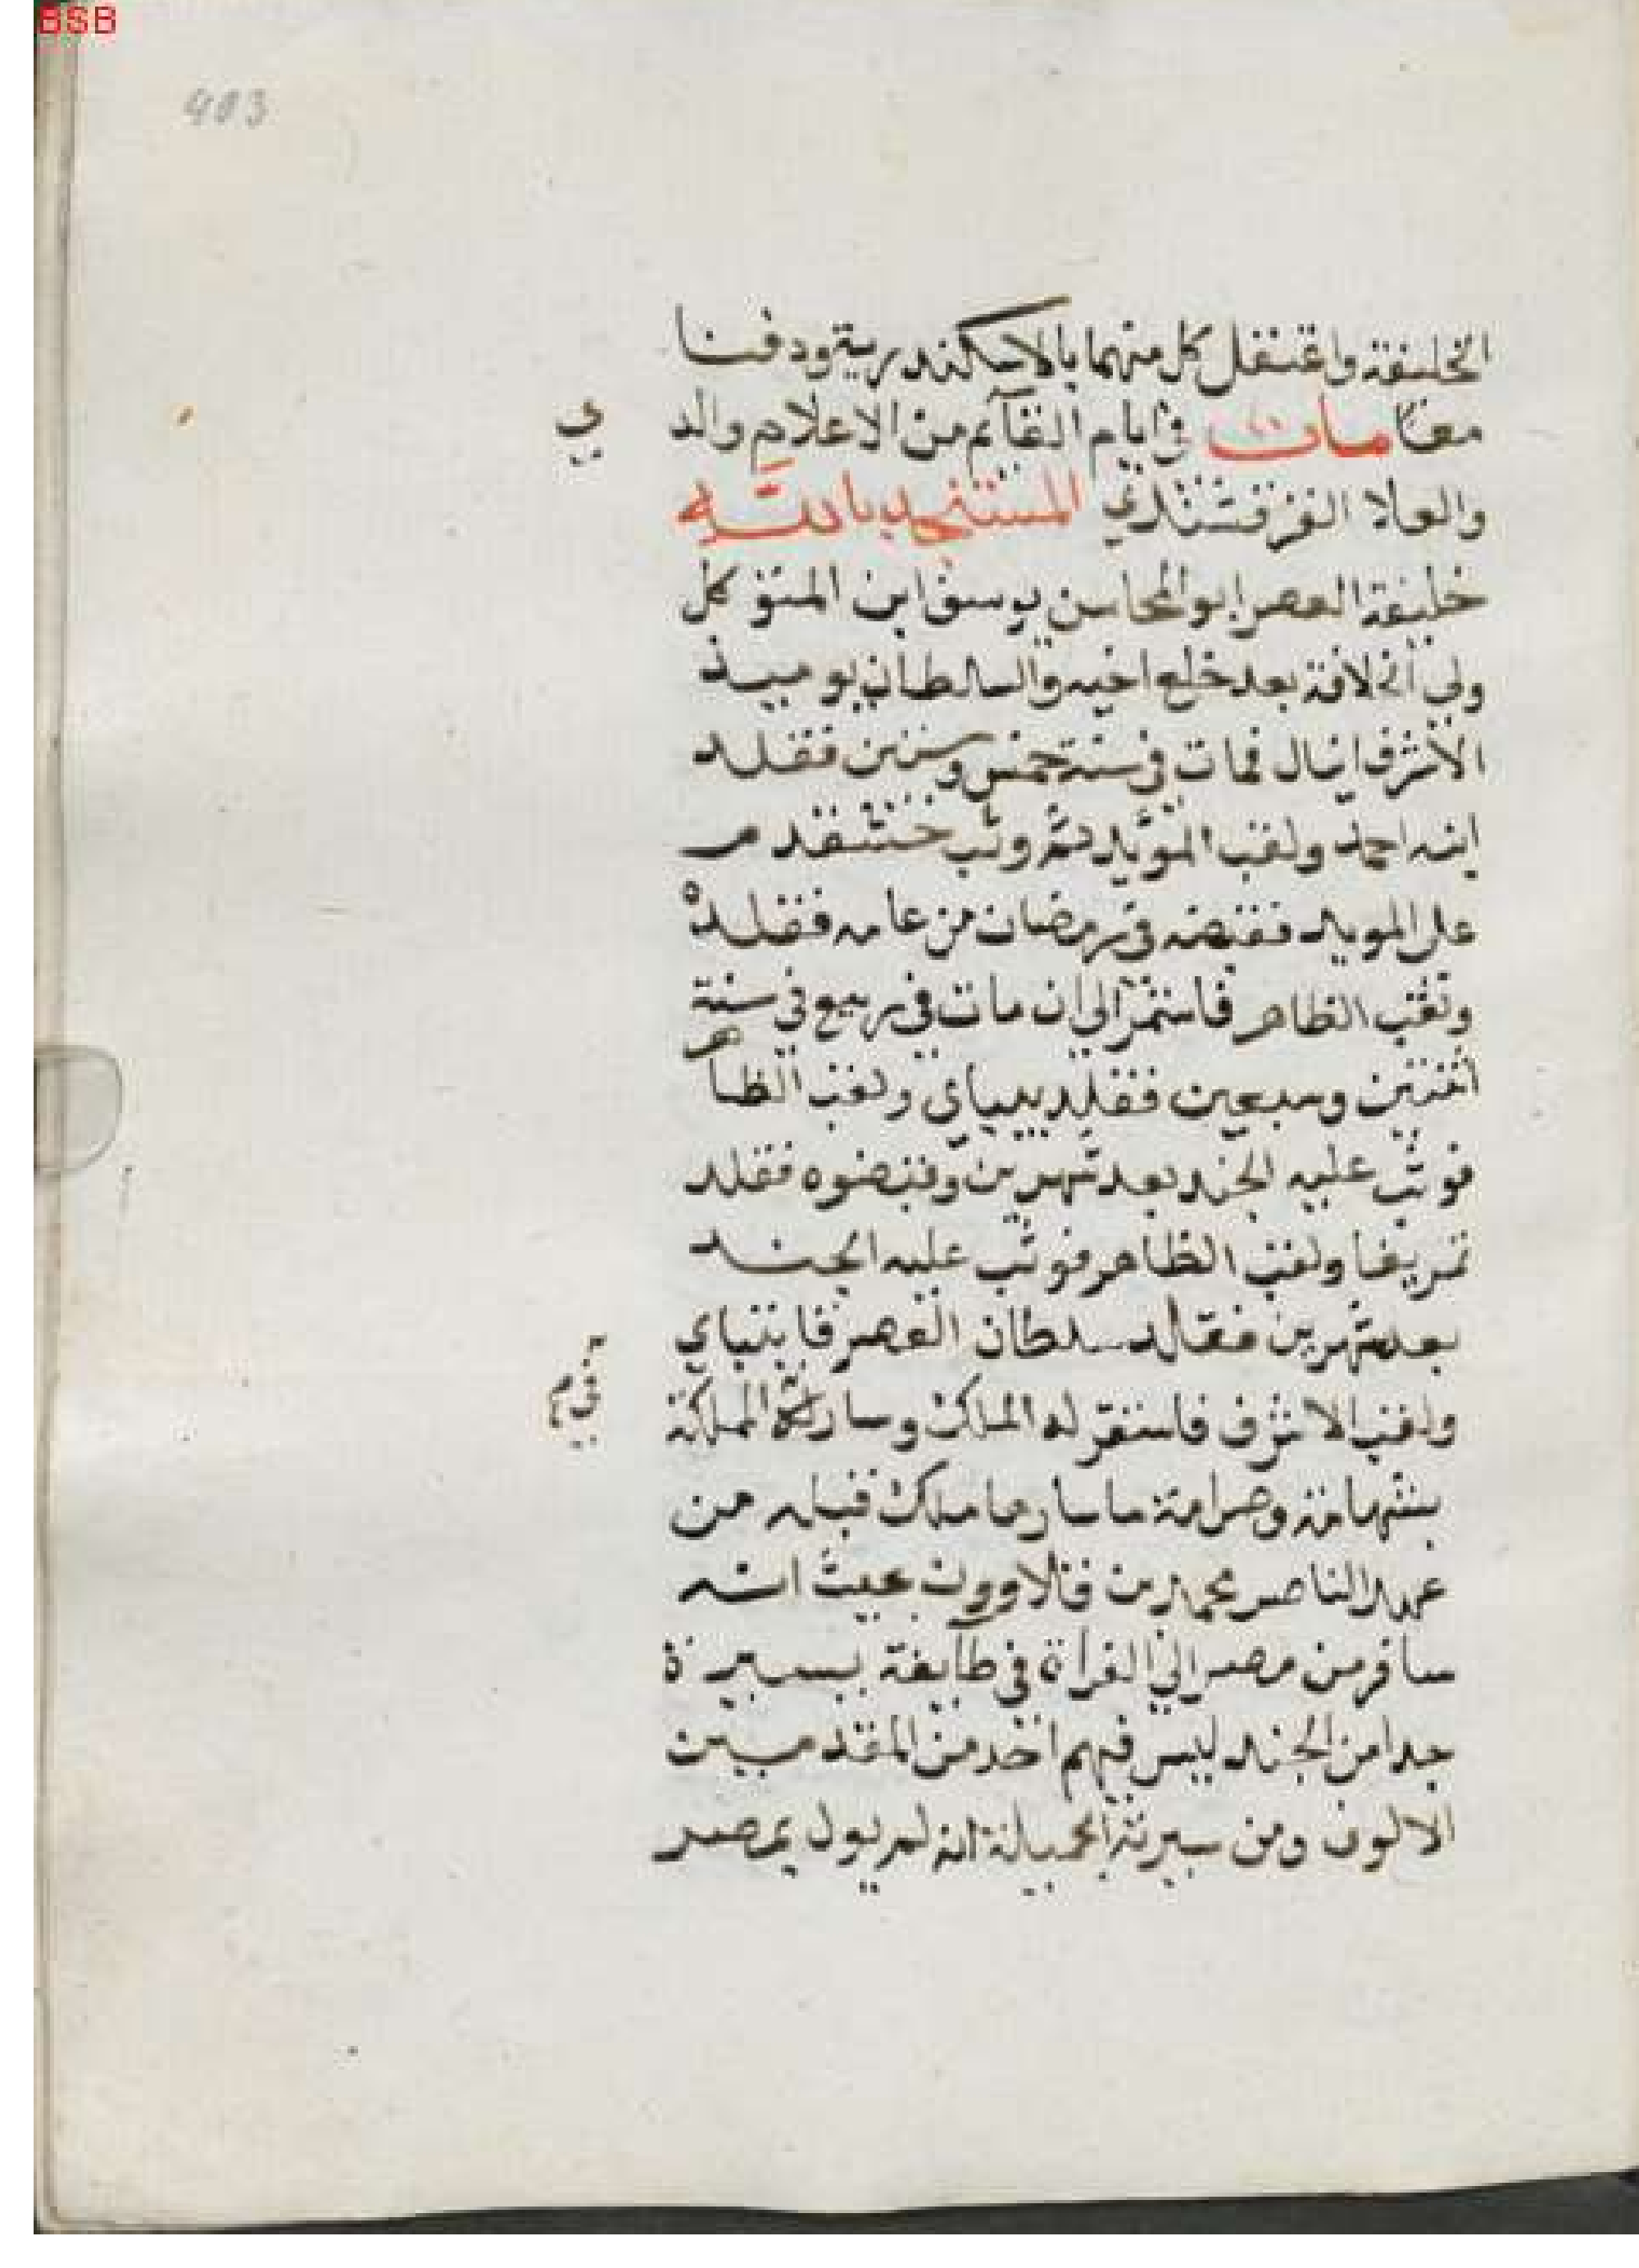 BSB
403
الخليفة واعتقل كل منهما بالاسكندرية ودفنا
معا مات في ايام القآئم من الاعلام والد
ي
والعلا القرقشندي المستنجد بالله
خليفة العصر ابو المحاسن يوسف ابن المتوكل
ولي الخلافة بعد خلع اخيه والسلطان يوميذ
الاشرف اينال فمات في سنة خمس وستين فقلد
ابنه احمد ولقب المؤيد ثم وثب خشقدم
على المويد فقبضه في رمضان من عامه فقلده
ولقب الظاهر فاستمر الى ان مات في ربيع في سنة
اثنتين وسبعين فقلد بلباي ولقب الظاهر
فوثب عليه الجند بعد شهرين وقبضوه فقلد
تمريغا ولقب الظاهر فوثب عليه الجند
بعد شهرين فقلد سلطان العصر قايتباي
ولقب الاشرف فاستقر له الملك وسار في المملكة
بشهامة وصرامة ما سار بها ملك قبله من
عهد الناصر محمد بن قلاوون بحيث انه
سافر من مصر الي الفراة في طآيفة يسيرة
جدا من الجند ليس فيهم احد من المقدمين
الالوف ومن سيرته الجميلة انه لم يول بمصر